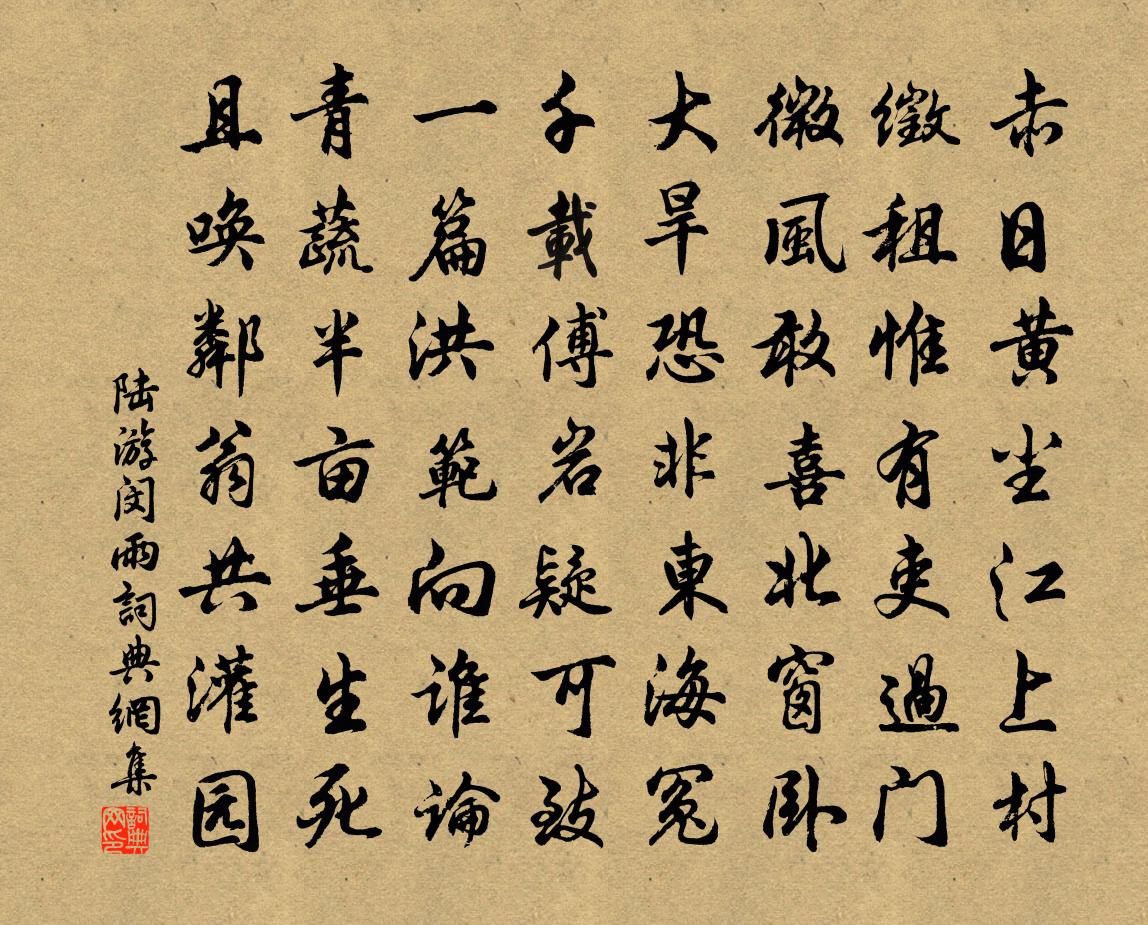 赤日黄尘江上村
徵租惟有吏過门
微風敢喜北窗卧
大旱恐非東海冤
千載傅岩疑可致
一篇洪範向谁論
青蔬半亩垂生死
且唤鄰翁共灌园
陆游闵雨詞典網集
詞典网印